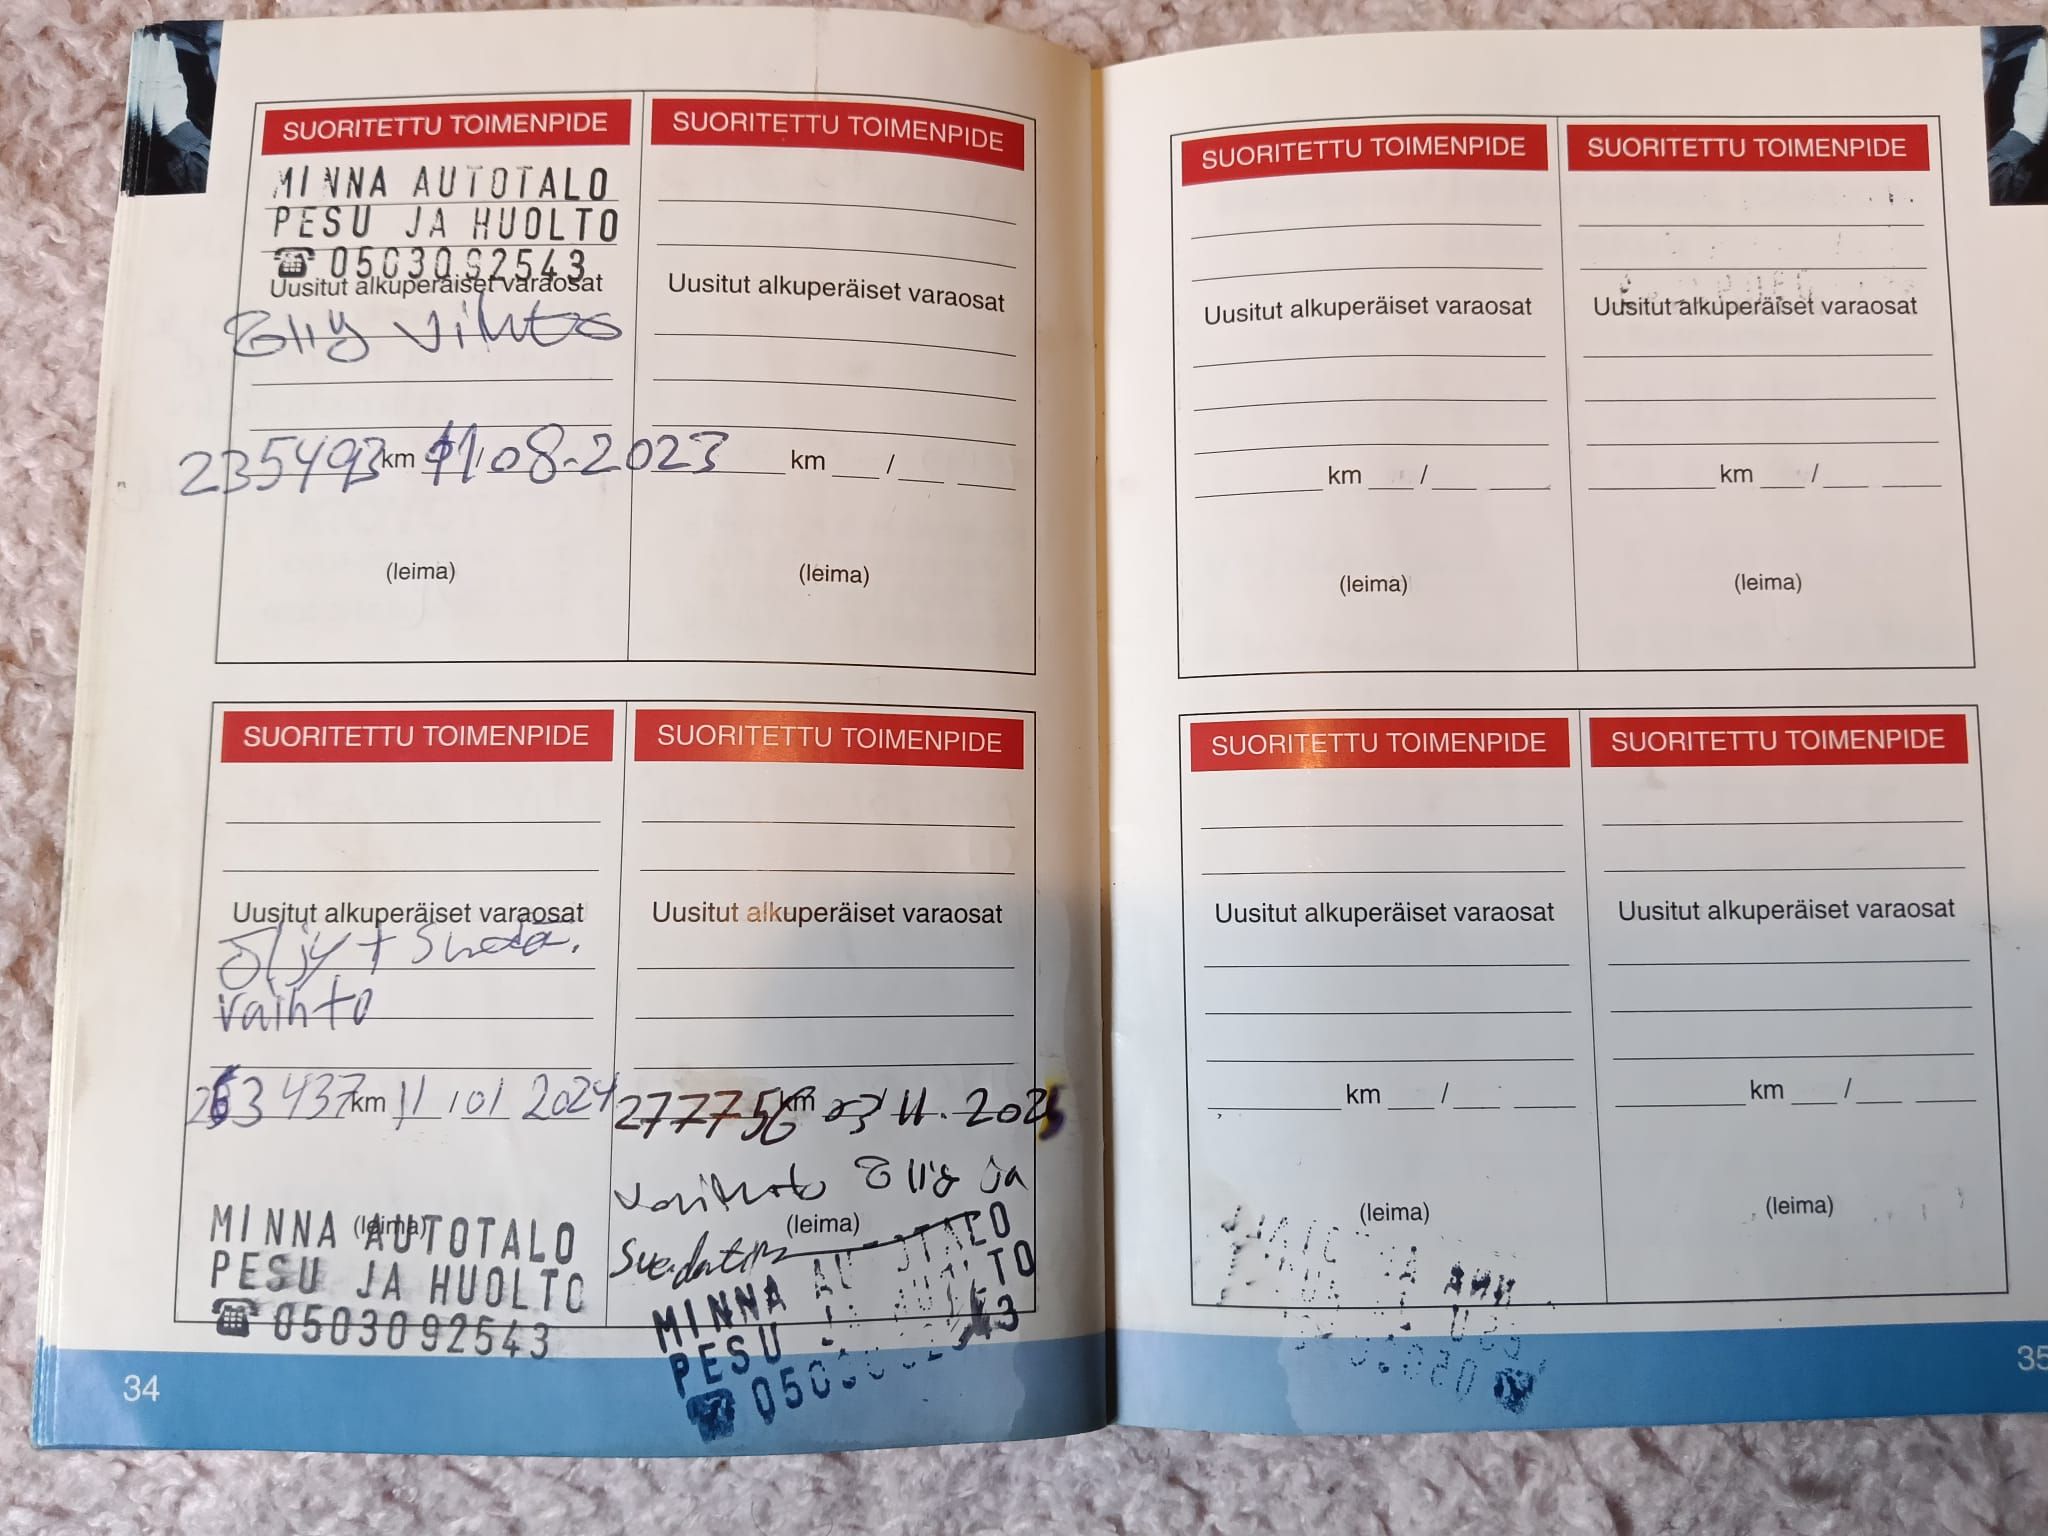 SUORITETTU TOIMENPIDE
MINNA AUTOTALO
PESU JA HUOLTO
☎ 0503092543
Uusitut alkuperäiset varaosat
235493 km 11.08.2023
(leima)
SUORITETTU TOIMENPIDE
Uusitut alkuperäiset varaosat
km /
(leima)
SUORITETTU TOIMENPIDE
Uusitut alkuperäiset varaosat
Öljy + Suoda.
vaihto
263 437 km 11 / 01 2024
(leima)
MINNA AUTOTALO
PESU JA HUOLTO
☎ 0503092543
SUORITETTU TOIMENPIDE
Uusitut alkuperäiset varaosat
277756 km 03 11. 2025
ja
(leima)
MINNA AUTOTALO
PESU JA HUOLTO
34
SUORITETTU TOIMENPIDE
Uusitut alkuperäiset varaosat
km /
(leima)
SUORITETTU TOIMENPIDE
Uusitut alkuperäiset varaosat
km /
(leima)
SUORITETTU TOIMENPIDE
Uusitut alkuperäiset varaosat
km /
(leima)
SUORITETTU TOIMENPIDE
Uusitut alkuperäiset varaosat
km /
(leima)
35